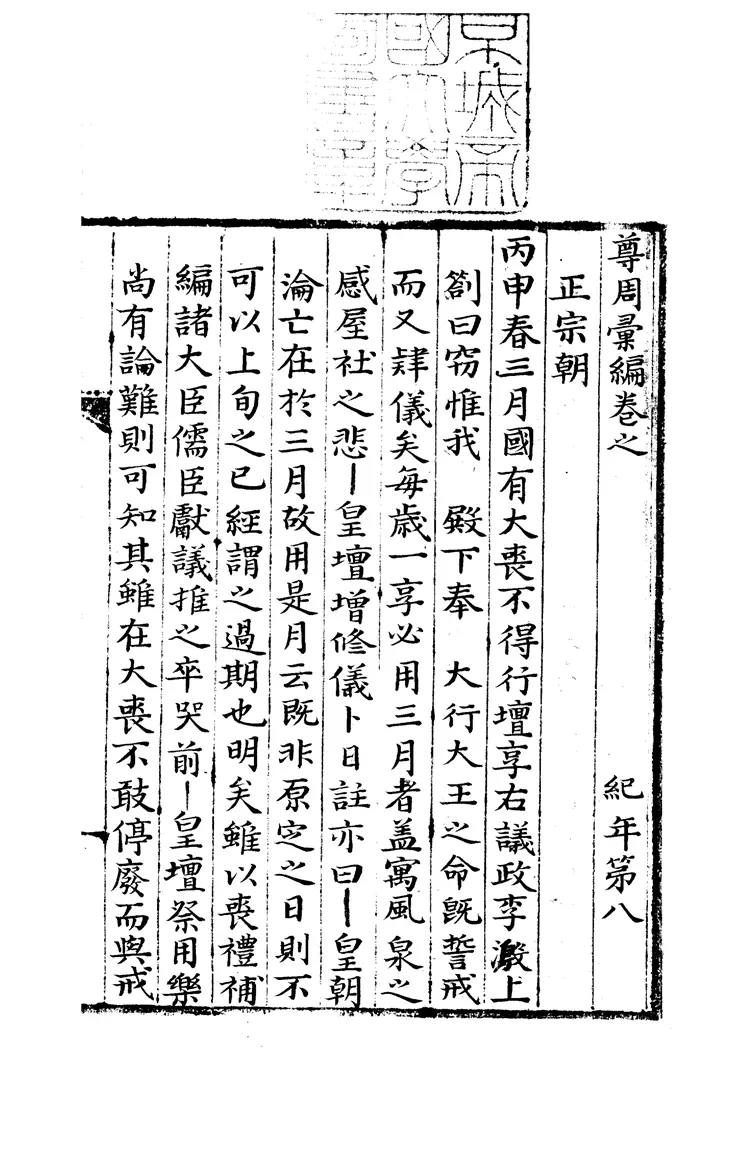 京城帝
國大學
圖書章
尊周彙編卷之 紀年第八
正宗朝
丙申春三月國有大喪不得行壇享右議政李溵上
劄曰窃惟我 殿下奉 大行大王之命既誓戒
而又肄儀矣每歲一享必用三月者盖寓風泉之
感屋社之悲ー皇壇增修儀卜日註亦曰ー皇朝
淪亡在於三月故用是月云既非原定之日則不
可以上旬之已經謂之過期也明矣雖以喪禮補
編諸大臣儒臣獻議推之卒哭前ー皇壇祭用樂
尚有論難則可知其雖在大喪不敢停廢而與戒